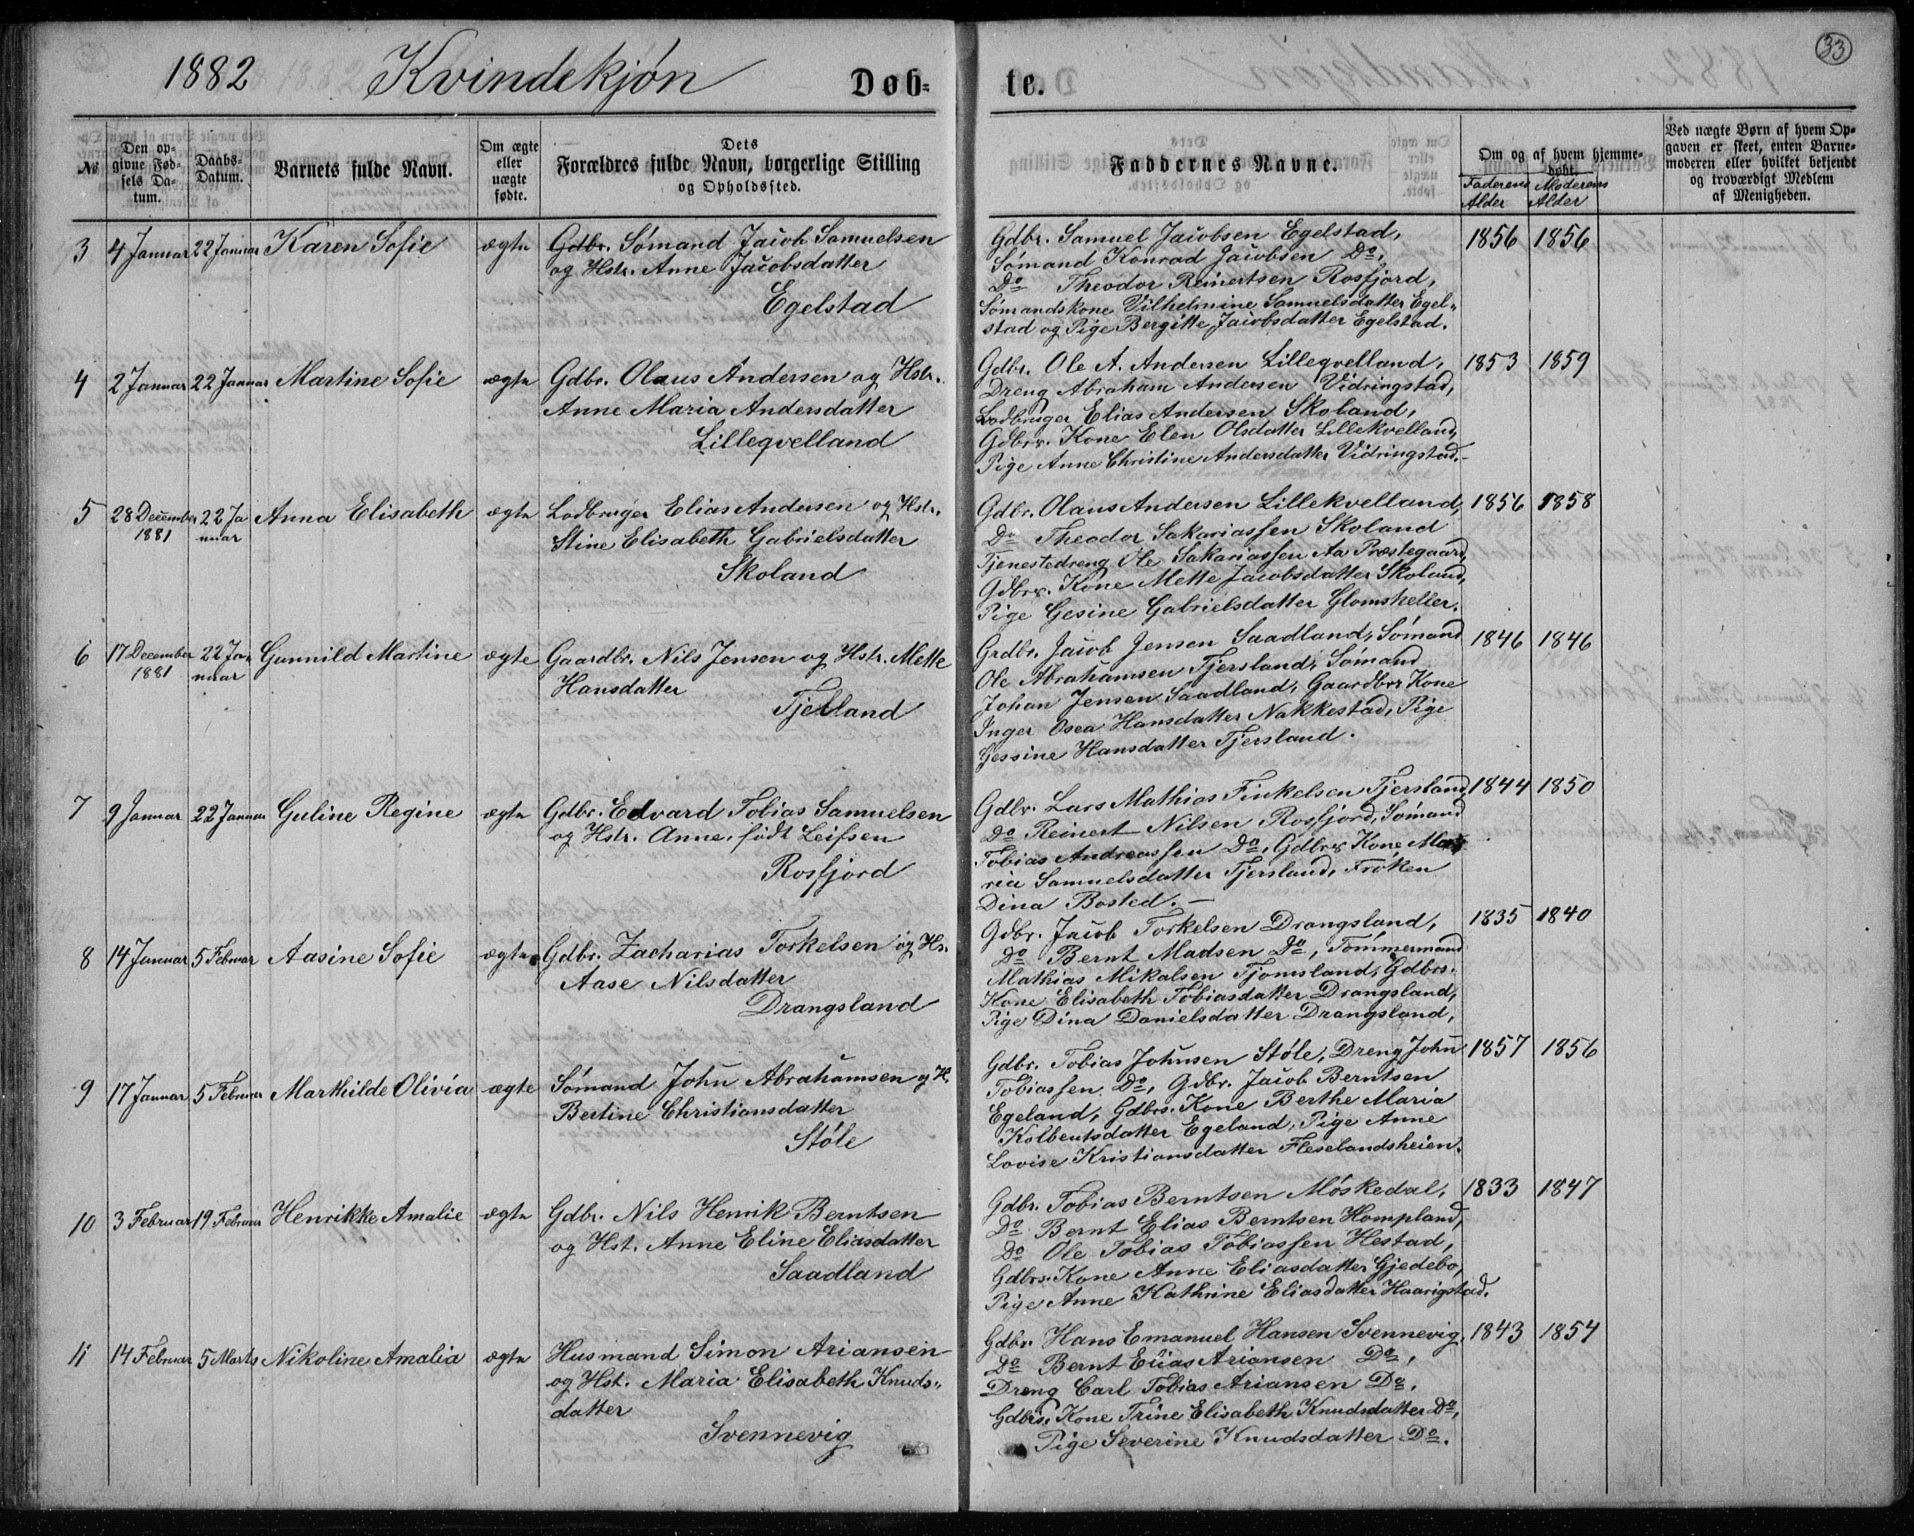 1882 Kvindekjøn Døb-
te.
33
№
Den op-
givne Fød-
sels Da-
tum.
Daabs-
Datum.
Barnets fulde Navn.
Om ægte
eller
uægte
fødte.
Dets
Forældres fulde Navn, borgerlige Stilling
og Opholdssted.
Faddernes Navne.
Om og af hvem hjemme-
døbt.
Faderens Moderens
Alder Alder
Ved uægte Børn af hvem Op-
gaven er skeet, enten Barne-
moderen eller hvilket bekjendt
og troværdigt Medlem
af Menigheden.
3 4 Januar 22 Januar Karen Sofie ægte Gdbr. Sømand Jacob Samuelsen
og Hstr. Anne Jacobsdatter
Egelstad
Gdbr. Samuel Jacobsen Egelstad, 1856 1856
Sømand Konrad Jacobsen Do,
Do Theodor Reinertsen Rosfjord,
Sømandskone Vilhelmine Samuelsdatter Egel-
stad og Pige Bergitte Jacobsdatter Egelstad.
4 2 Januar 22 Januar Martine Sofie ægte Gdbr. Olaus Andersen og Hstr.
Anne Maria Andersdatter
Lilleqvelland
Gdbr. Ole A. Andersen Lilleqvelland, 1853 1859
Dreng Abraham Andersen Vidringstad,
Lodbruger Elias Andersen Skoland,
Gdbrs. Kone Elen Olsdatter Lillekvelland,
Pige Anne Christine Andersdatter Vidringstad.
5 28 December 22 Ja Anna Elisabeth ægte Lodbruger Elias Andersen og Hstr.
1881 nuar Stine Elisabeth Gabrielsdatter
Skoland
Gdbr. Olaus Andersen Lillekvelland, 1856 1858
Do Theodor Sakariassen Skoland
Tjenestedreng Ole Sakariassen Aa Præstegaard,
Gdbrs. Kone Mette Jacobsdatter Skoland,
Pige Gesine Gabrielsdatter Glomsheller.
6 17 December 22 Ja Gunnild Martine ægte Gaardbr. Nils Jensen og Hstr. Mette
1881 nuar Hansdatter
Tjelland
Grdbr. Jacob Jensen Saadland, Sømand 1846 1846
Ole Abrahamsen Tjersland, Sømand
Johan Jensen Saadland, Gaardbrs Kone
Inger Osea Hansdatter Nakkestad, Pige
Gessine Hansdatter Tjersland.
7 9 Januar 22 Januar Guline Regine ægte Gdbr. Edvard Tobias Samuelsen
og Hstr. Anne, født Leifsen
Rosfjord
Gdbr. Lars Mathias Finkelsen Tjersland 1844 1850
Do Reinert Nilsen Rosfjord, Sømand
Tobias Andreassen Do, Gdbrs Kone Ma
ria Samuelsdatter Tjersland, Frøken
Dina Bosted. —
8 14 Januar 5 Februar Aasine Sofie ægte Gdbr. Zacharias Torkelsen og Hs.
Aase Nilsdatter
Drangsland
Gdbr. Jacob Torkelsen Drangsland, 1835 1840
Do Bernt Madsen Do, Tømmermand
Mathias Mikalsen Tjomsland, Gdbrs.
Kone Elisabeth Tobiasdatter Drangsland,
Pige Dina Danielsdatter Drangsland,
9 17 Januar 5 Februar Marthilde Olivia ægte Sømand John Abrahamsen og H.
Bertine Christiansdatter
Støle
Gdbr. Tobias Johnsen Støle, Dreng John 1857 1856
Tobiassen Do, Gdbr. Jacob Berntsen
Egeland, Gdbrs. Kone Berthe Maria
Kolbentsdatter Egeland, Pige Anne
Lovise Kristiansdatter Fleselandsheien.
10 3 Februar 19 Februar Henrikke Amalie ægte Gdbr. Nils Henrik Berntsen
og Hst. Anne Eline Eliasdatter
Saadland
Gdbr. Tobias Berntsen Møskedal, 1833 1847
Do Bernt Elias Berntsen Hompland,
Do Ole Tobias Tobiassen Hestad,
Gdbrs. Kone Anne Eliasdatter Gjedebo,
Pige Anne Kathrine Eliasdatter Haarigstad.
11 14 Februar 5 Marts Nikoline Amalia ægte Husmand Simon Ariansen
og Hst. Maria Elisabeth Knuds-
datter
Svennevig
Gdbr. Hans Emanuel Hansen Svennevig, 1843 1854
Do Bernt Elias Ariansen Do,
Dreng Carl Tobias Ariansen Do,
Gdbrs. Kone Trine Elisabeth Knudsdatter Do,
Pige Severine Knudsdatter Do.